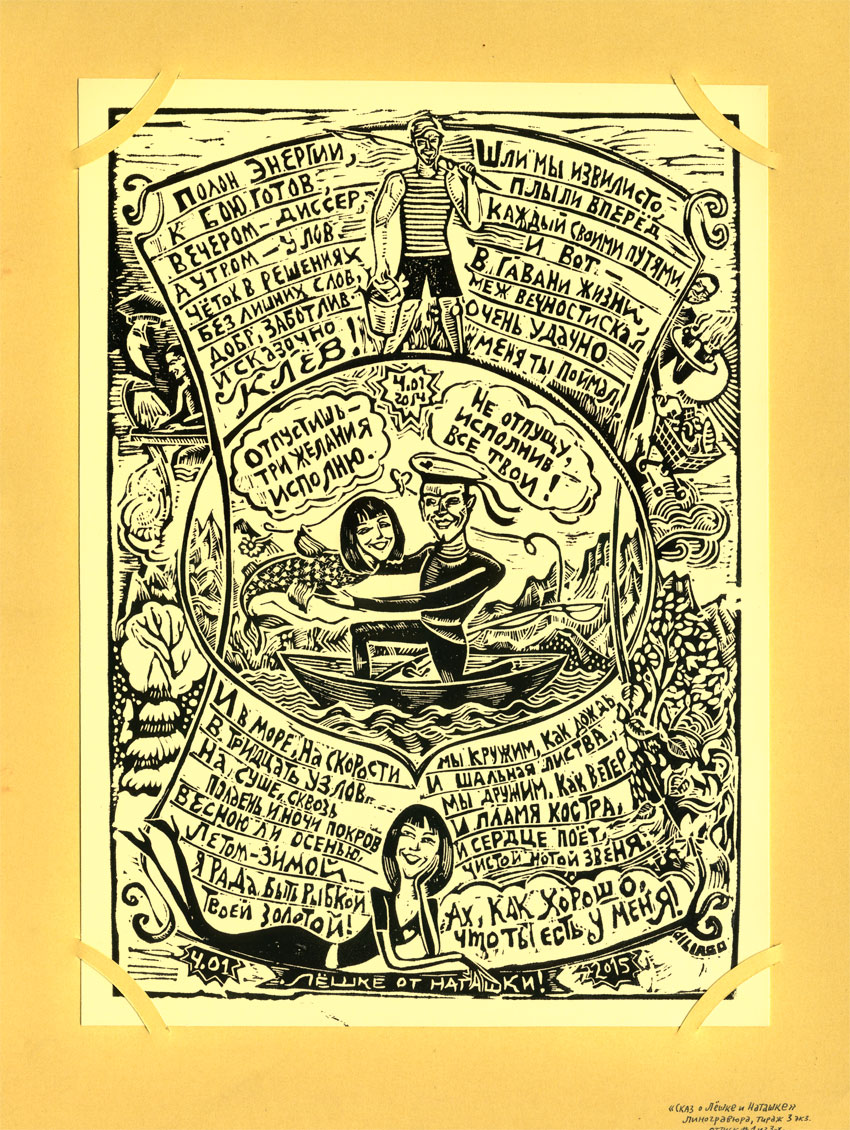 Полон энергии,
к бою готов,
вечером – диссер,
а утром – улов.
Чёток в решениях
без лишних слов,
добр, заботлив –
и сказочно
клёв!
Шли мы извилисто,
плыли вперед
каждый своими путями
и вот –
в гавани жизни,
меж вечности скал
очень удачно
меня ты поймал.
4.01
2014
Отпустишь –
три желания
исполню.
Не отпущу,
исполнив
все твои!
И в море, на скорости
в тридцать узлов...
На суше, сквозь
полдень и ночи покров
весною ли осенью,
летом–зимой
я рада быть рыбкой
твоей золотой!
Мы кружим, как дождь
и шальная листва,
мы дружим, как ветер
и пламя костра,
и сердце поёт,
чистой нотой звеня,
Ах, как хорошо,
что ты есть у меня!
4.01
Лёшке от Наташки!
2015
«Сказ о Лёшке и Наташке»
линогравюра, тираж 3 экз.